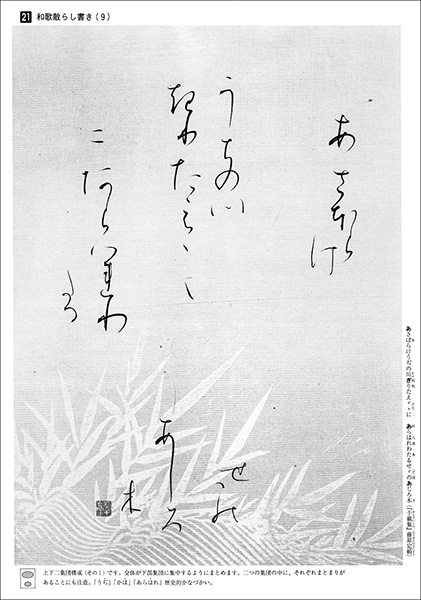 21 和歌散らし書き（9）
あさほらけ
うちの川
起りたえ〱
にあらハ連わ
たる
せゝの
あしろ
木
あさぼらけうぢの川ぎりたえ〴〵に　あらはれわたるせゞのあじろ木（『千載集』藤原定頼）
上下二集団構成（その１）です。全体が下部集団に集中するようにまとめます。二つの集団の中に、それぞれまとまりが
あることにも注意。「うぢ」「かは」「あらはれ」歴史的かなづかい。